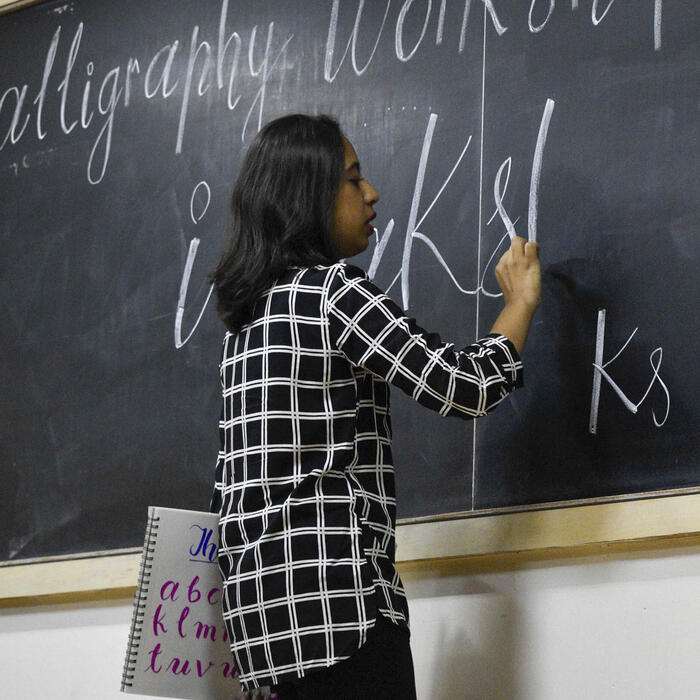 Calligraphy Workshop
i Ks
ks
Th
a b c
k l m
t u v